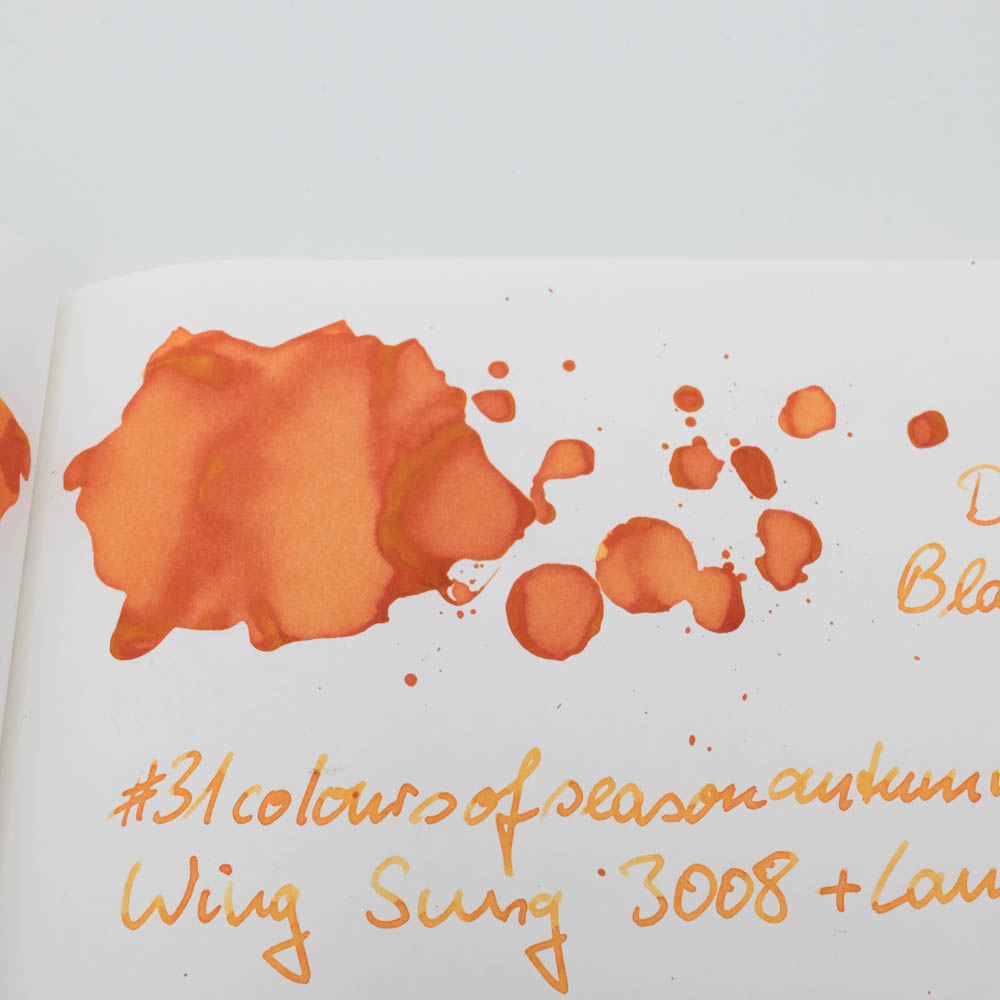 D
Bla
#31coloursofseasonautumn
Wing Sung 3008 + Lam